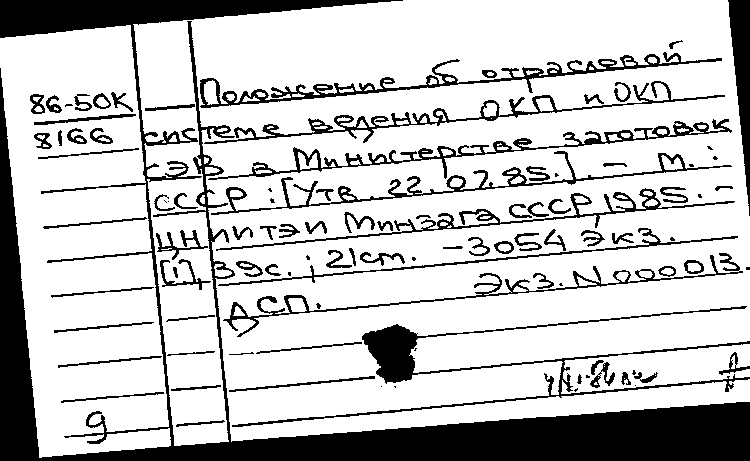 86-50К Положение об отраслевой
8166 системе ведения ОКП и ОКП
СЭВ в Министерстве заготовок
СССР : [Утв. 22.07.85.]. - М. :
ЦНИИТЭИ Минзага СССР, 1985. -
[1], 39с. ; 21см. - 3054 экз.
ДСП. Экз. N 000013.
9